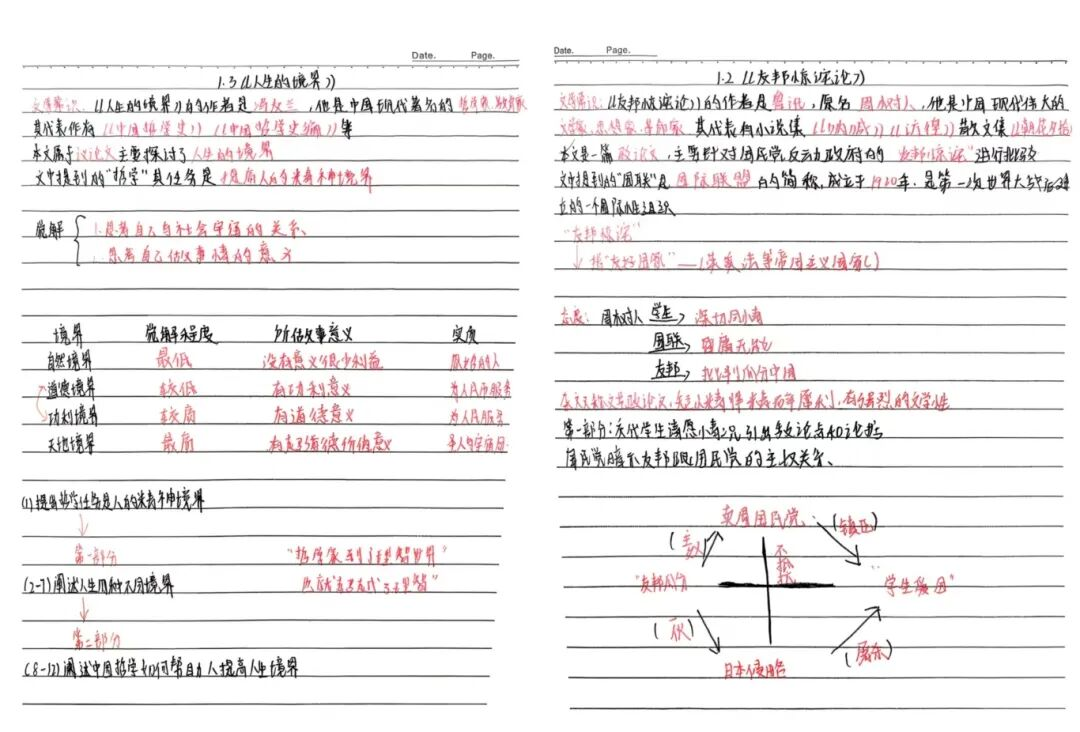 Date. Page.
1.3《人生的境界》
文学常识:《人生的境界》的作者是冯友兰,他是中国现代著名的哲学家、教育家
其代表作有《中国哲学史》《中国哲学史新编》等
本文属于议论文主要探讨了人生的境界
文中提到的"哲学"其任务是提高人的精神境界
觉解
1.思考自己与社会宇宙的关系、
思考自己做事情的意义
境界 觉解程度 所做事意义 实质
自然境界 最低 没有意义很少利益
道德境界 较低 有功利意义 为人民服务
功利境界 较高 有道德意义 为人民服务
天地境界 最高 有超道德价值意义
(1)提出哲学任务是人的精神境界
第一部分 "哲学家到了理智世界"
(2-7)阐述人生四种不同境界
第二部分
(8-12)阐述中国哲学如何帮助人提高人生境界
Date. Page.
1.2《友邦惊诧论》
文学常识:《友邦惊诧论》的作者是鲁迅,原名周树人,他是中国现代伟大的
文学家、思想家、革命家 其代表有小说集《呐喊》《彷徨》散文集《朝花夕拾》
本文是一篇政论文,主要针对国民党反动政府的"友邦惊诧"进行批驳
文中提到的"国联"是国际联盟的简称,成立于1920年,是第一次世界大战后建
立的一个国际性组织
"友邦惊诧"
指"友好国家"——(英美法等帝国主义国家()
态度: 周树人 学生 深切同情
国联 昏庸无能
友邦 批判瓜分中国
第一部分:交代学生请愿情况引出敌论点和论据
国民党暗示友邦跟国民党的主权关系、
卖国国民党
(镇压)
不抵抗
"友邦瓜分" "学生爱国"
(屠杀)
日本侵略